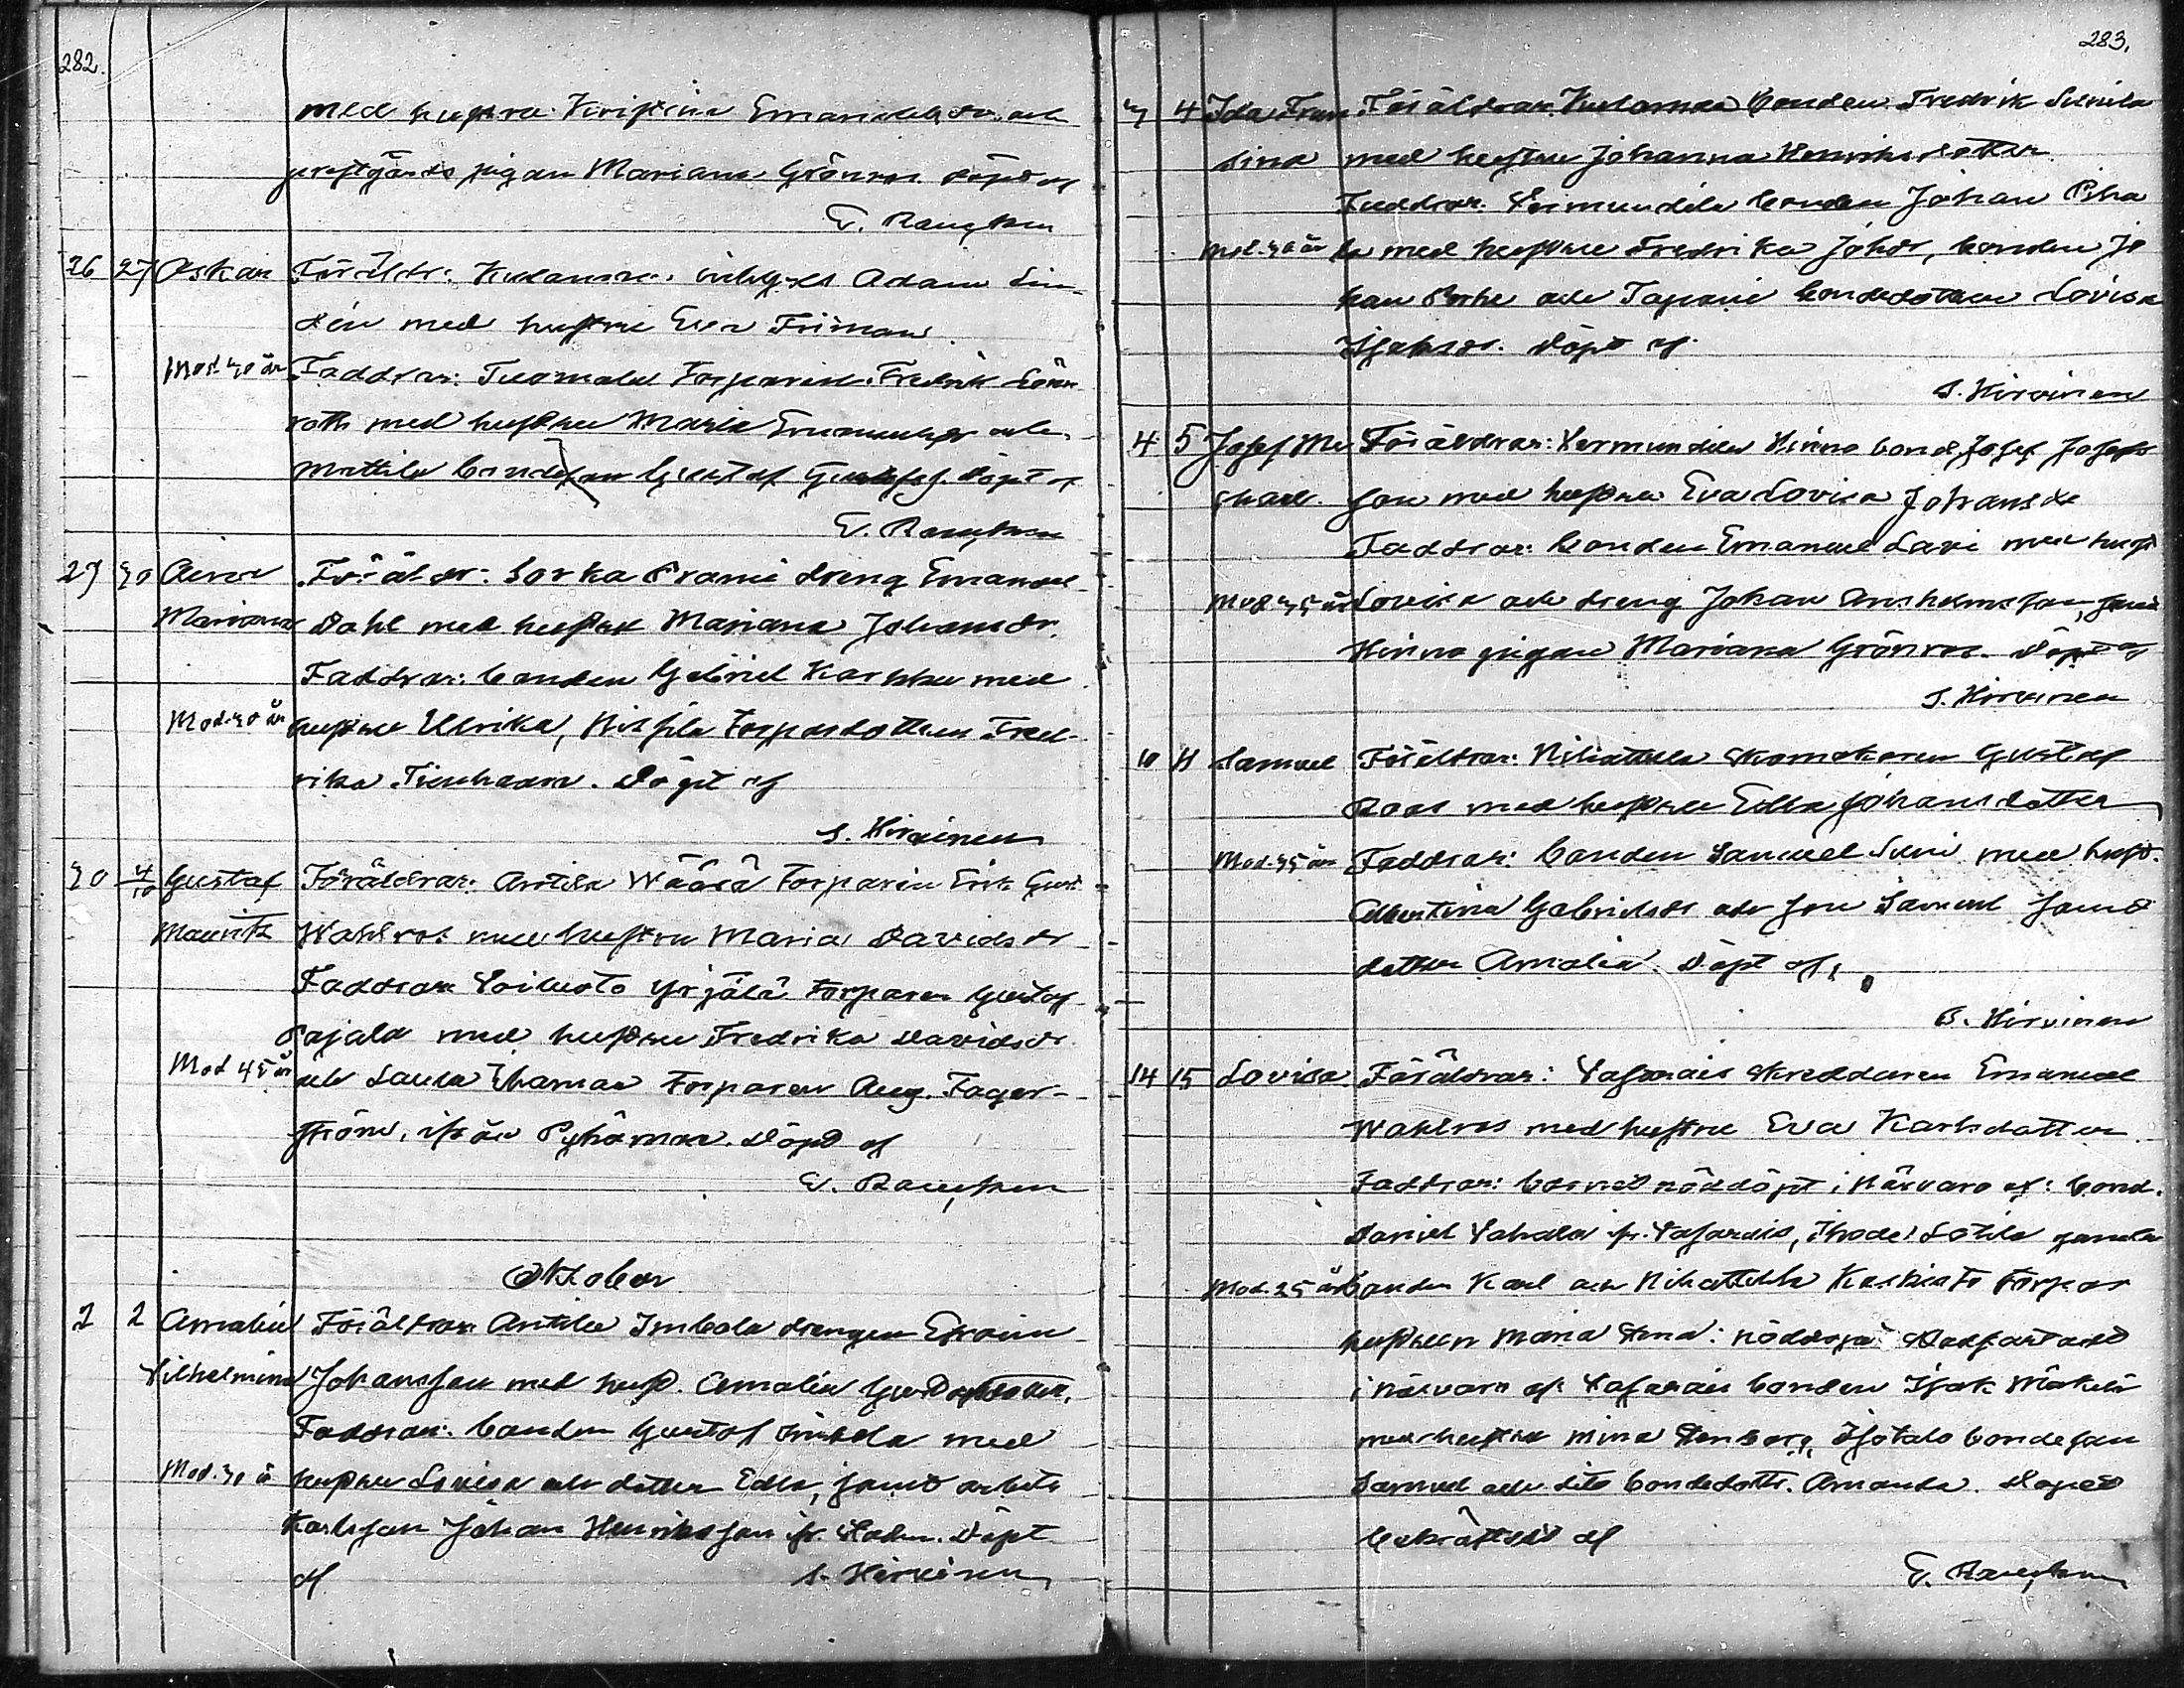 282.
med hustru Kristina Emanuelsdr. och
prestgårds pigan Mariana Grönroos. döpt af
E. Rancken
26 27 Oskar Föräldr: Kulamaa inhyses Adam Lin-
dén med hustru Eva Friman
Mod. 30 år Faddrar: Tuomala Torparen Fredrik Lönn
roth med hustru Maria Emanuelsdr och
Mattila bondeson Gustaf Gustafss. döpt af
E. Rancken
27 30 Aina Föräldr: Sorka Prami dreng Emanuel
Mariana Dahl med hustru Mariana Johansdr.
Faddrar: bonden Gabriel Karhku med
Mod. 30 år hustru Ulrika, Torpardottren Fred-
rika Tienhaara. Döpt af
S. Hirvinen
30 4/10 Gustaf Föräldrar: Anttila Wäärä Torparen Erik Gust.
Mauritz Wahlros med hustru Maria Davidsdr
Faddrar: Voiluoto Yrjälä Torparen Gustaf
Pajala med hustru Fredrika Davidsdr
Mod 45 år och Torparen Aug. Fager-
ström, ifrån Pyhämaa. Döpt af
E. Rancken
Oktober
2 2 Amalia Föräldrar: Anttila Imbola drengen Efraim
Vilhelmina Johansson med hust. Amalia Gustafsdotter.
Faddrar: bonden Gustaf Imbola med
Mod. 30 å hustru Lovisa och dotter Edla, samt arbets
Karlsson Johan Henriksson fr. Döpt
af S. Hirvinen
283.
3 4 Ida Fran Föräldrar: Kulamaa bonden Fredrik Sunila
sina med hustru Johanna Henriksdotter
Faddrar: Vermundila bonden Johan Piha
Mod. 30 år la med hustru Fredrika Johdr, bonden Jo
han och Tapani bondedottren Lovisa
Isaksdr. Döpt af
S. Hirvinen
4 5 Josef Mi Föräldrar: Vermundila Hinno bond. Josef Josefs
chael. son med hustru Eva Lovisa Johansdr
Faddrar: bonden Emanuel Lavi med hust
Mod 35 år Lovisa och dreng Johan Anshelmsson, samt
Hinno pigan Mariana Grönroos. Döpt af
S. Hirvinen
10 11 Samuel Föräldrar: Nihattula Skomakaren Gustaf
Roos med hustru Edla Johansdotter
Mod. 35 år Faddrar: bonden Samuel Suni med hust.
Albertina Gabrielsdr och son Samuel samt
dotter Amalia Döpt af,
S. Hirvinen
14 15 Lovisa Föräldrar: Vafarais Skreddaren Emanuel
Wahlros med hustru Eva Karlsdotter
Faddrar: barnet nöddöpt i närvaro af: bond.
Daniel fr. Vafarais, Ihode Sotila gamla
Mod. 25 år bonden Karl och Nihattula Torpar
hustrun Maria Stina: nöddopet
i närvaro af Vafarais bonden Isak Mäkilä
med hustru Mina Stenborg, Isotalo bondeson
Samuel och dito bondedottr. Amanda. Dopet
bekräftadt af
E. Rancken